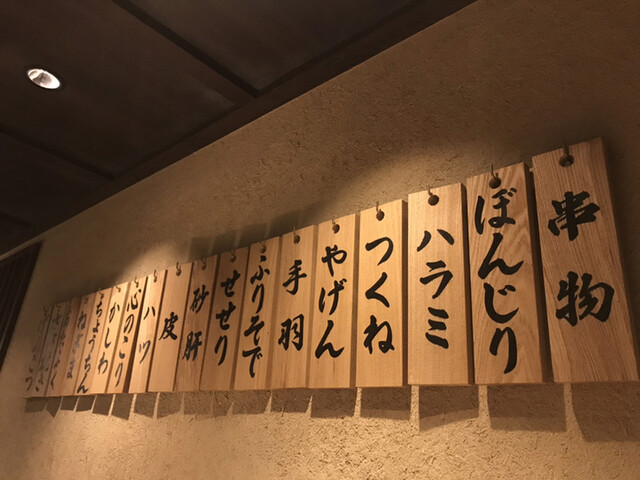 串物
ぼんじり
ハラミ
つくね
やげん
手羽
ふりそで
せせり
砂肝
皮
ハツ
心のこり
かしわ
ちょうちん